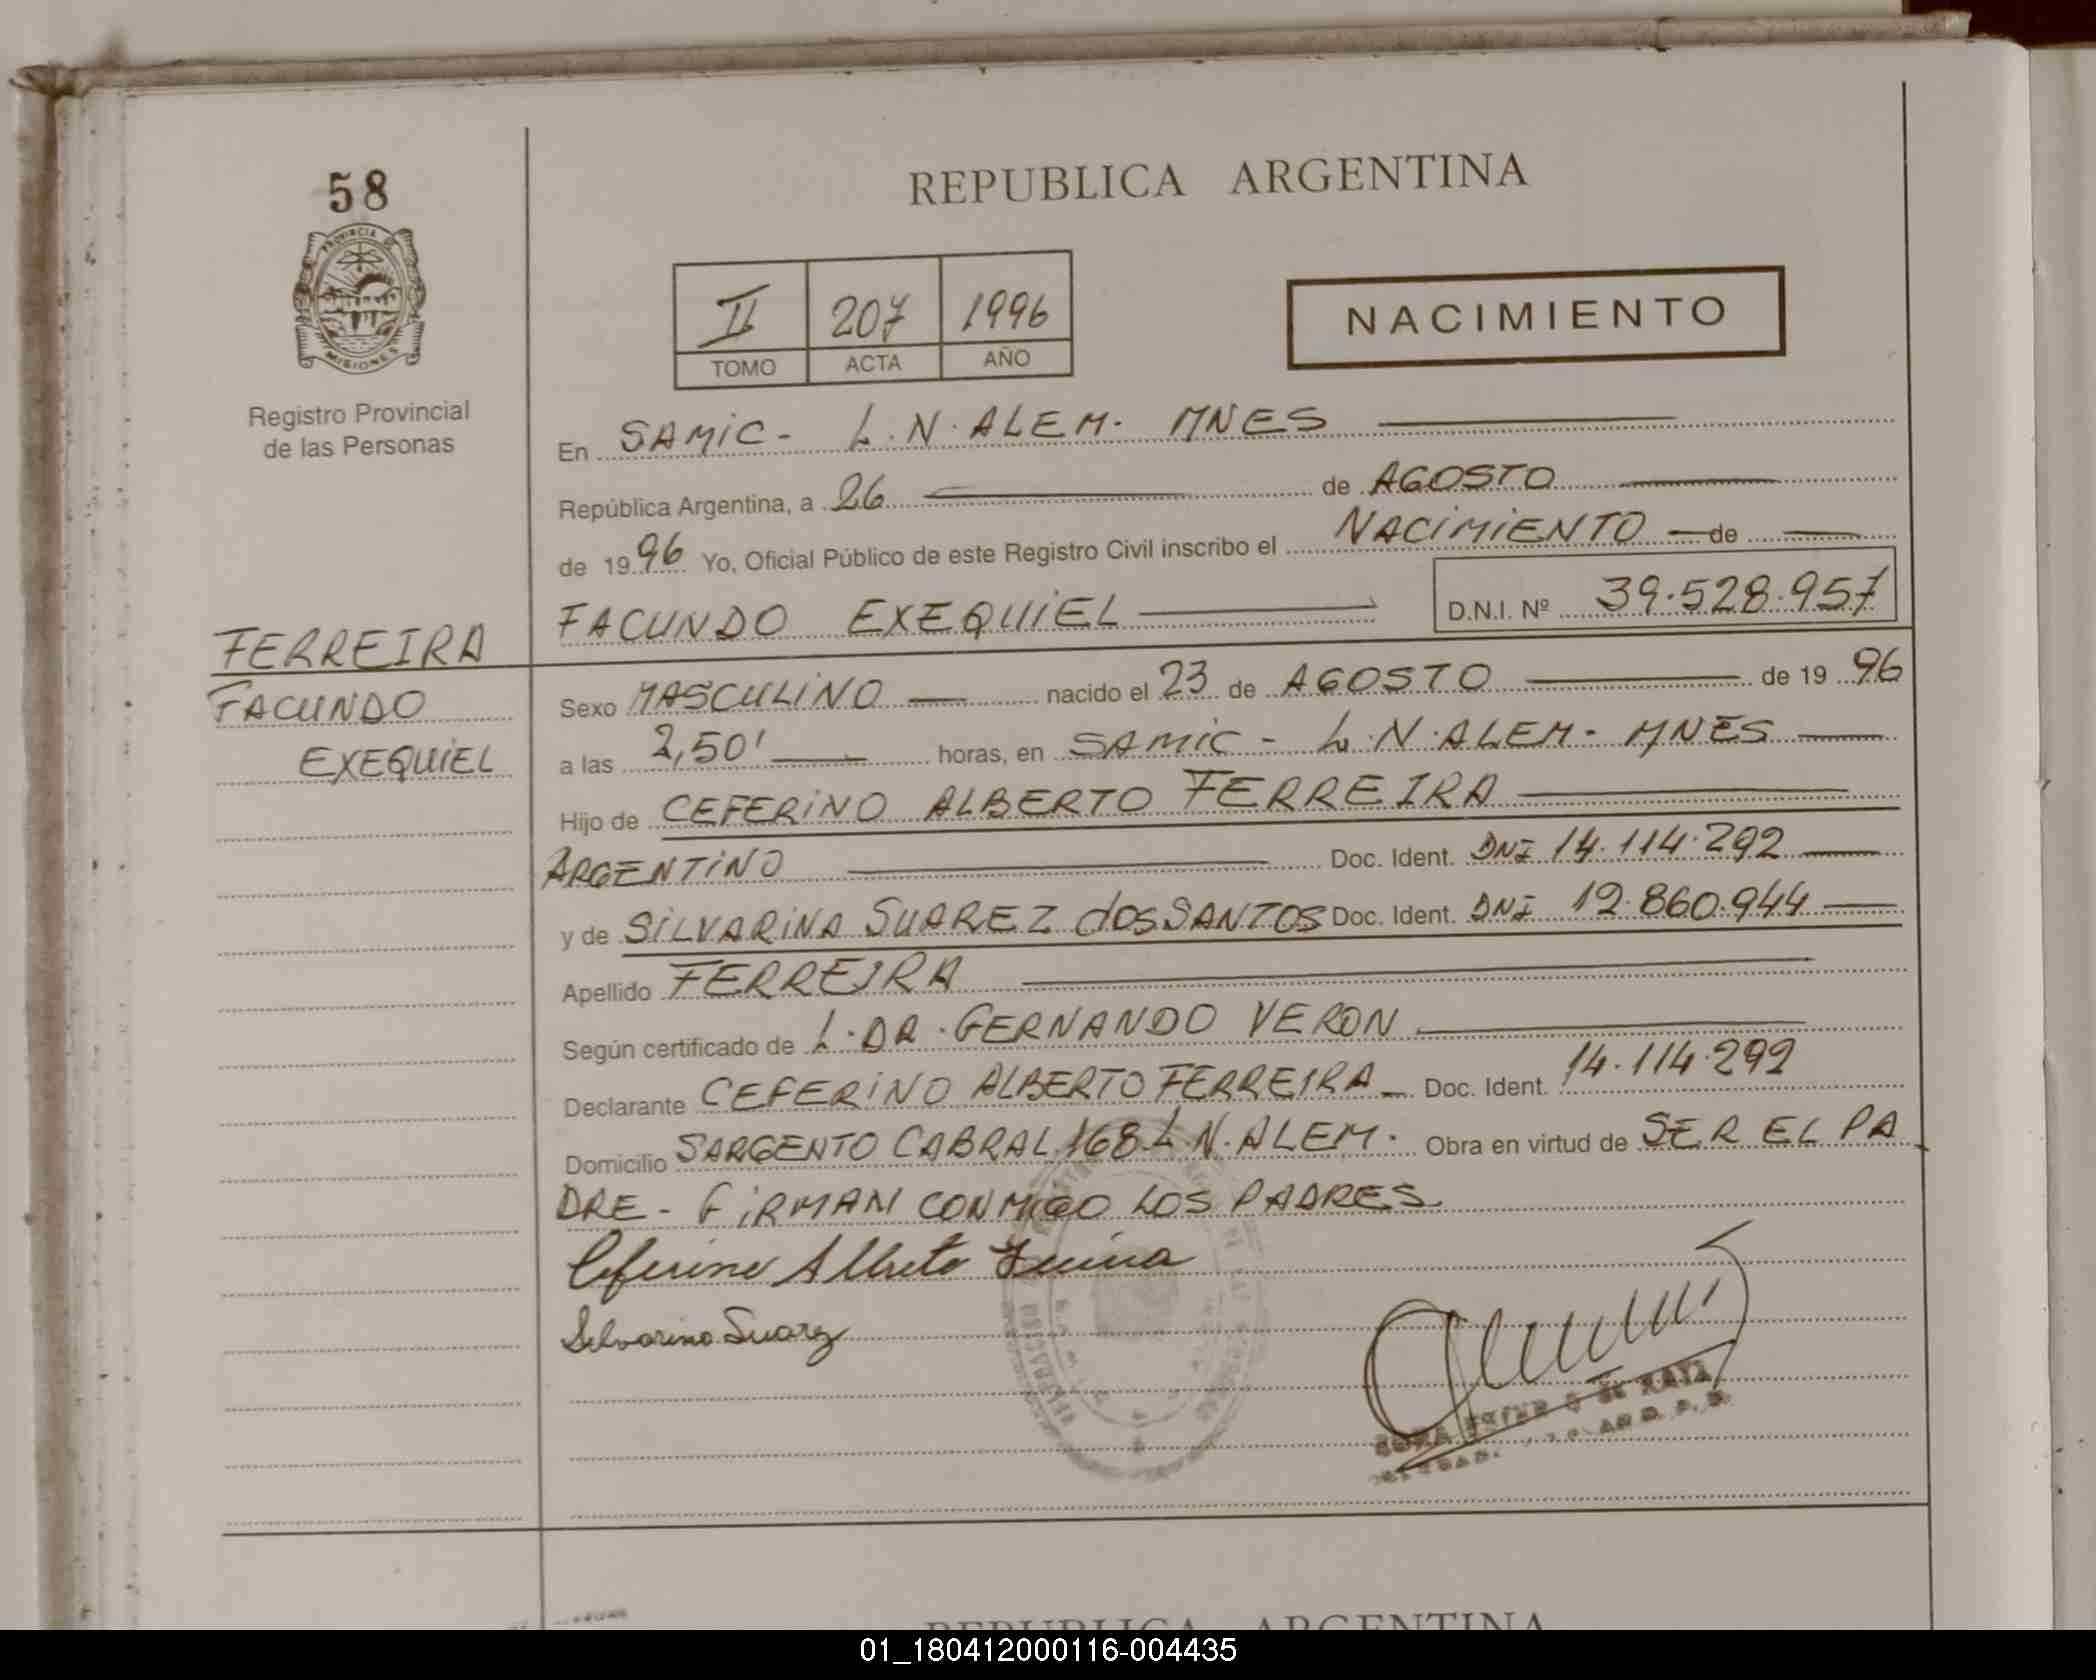 58
PROVINCIA DE
MISIONES
Registro Provincial
de las Personas
REPUBLICA ARGENTINA
II 207 1996
TOMO ACTA AÑO
NACIMIENTO
En SAMIC - L.N. ALEM. MNES
República Argentina, a 26 de AGOSTO
de 1996 Yo, Oficial Público de este Registro Civil inscribo el NACIMIENTO de
FACUNDO EXEQUIEL D.N.I. Nº 39.528.957
FERREIRA
FACUNDO
EXEQUIEL
Sexo MASCULINO nacido el 23 de AGOSTO de 1996
a las 2,50' horas, en SAMIC - L.N. ALEM - MNES
Hijo de CEFERINO ALBERTO FERREIRA
ARGENTINO Doc. Ident. DNI 14.114.292
y de SILVARINA SUAREZ dOS SANTOS Doc. Ident. DNI 12.860.944
Apellido FERREIRA
Según certificado de L. DR. FERNANDO VERON
Declarante CEFERINO ALBERTO FERREIRA - Doc. Ident. 14.114.292
Domicilio SARGENTO CABRAL 168 L.N. ALEM. Obra en virtud de SER EL PA
DRE - FIRMAN CONMIGO LOS PADRES.
Ceferino Alberto Ferreira
Silvarina Suarez
REPUBLICA ARGENTINA
01_180412000116-004435